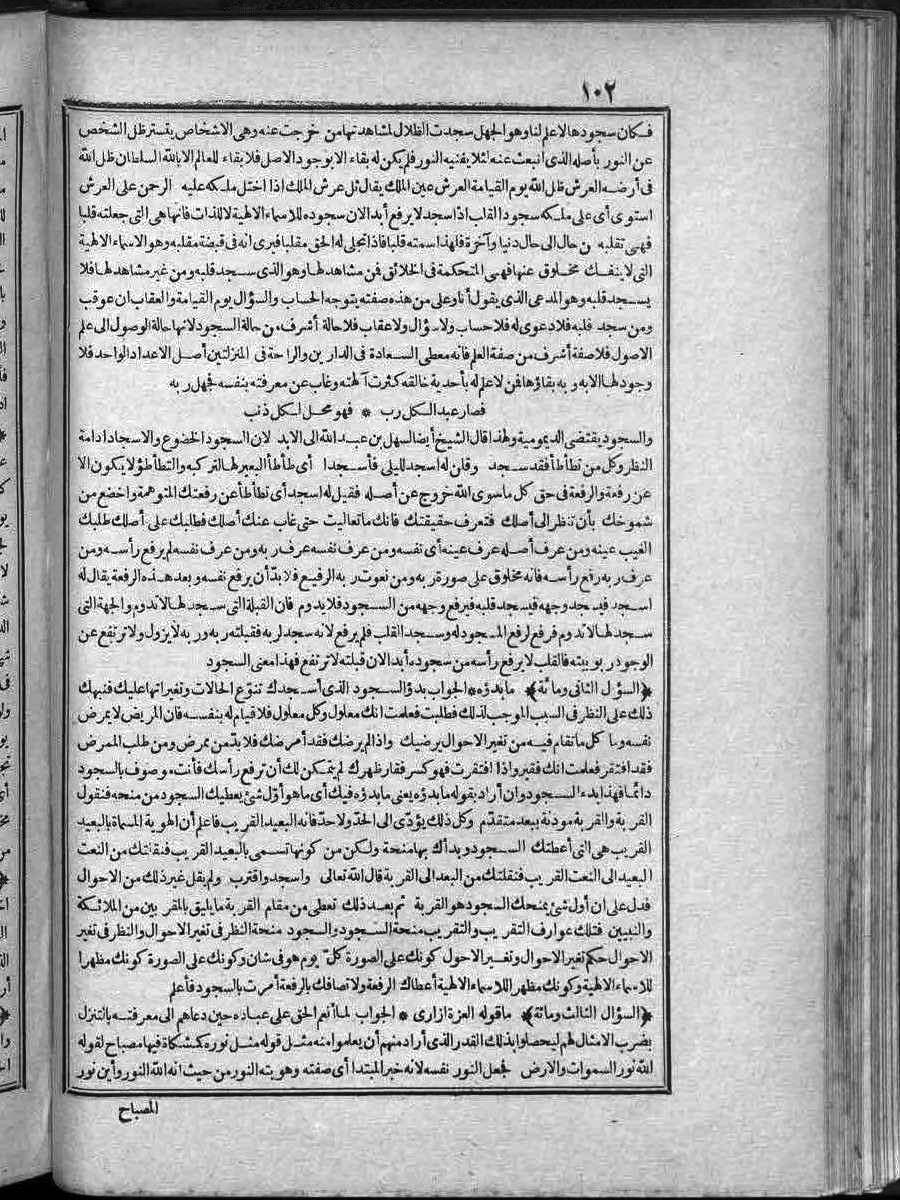 ١٠٢
فكان سجودها لاعلمنا وهو الجهل سجدت الظلال لمشاهدتها من خرجت عنه وهي الاشخاص يتستر ظل الشخص
عن النور بأصله الذى انبعث عنه لئلا يفنيه النور فلم يكن له بقاء الا بوجود الاصل فلا بقاء للعالم الا بالله السلطان ظل الله
فى أرضه العرش ظل الله يوم القيامة العرش عين الملك يقال ثل عرش الملك اذا اختل ملكه عليه الرحمن على العرش
استوى أى على ملكه سجود القلب اذا سجد لا يرفع أبدا لان سجوده للاسماء الالهية لا للذات فانها هى التى جعلته قلبا
فهى تقلبه من حال الى حال دنيا وآخرة فلهذا سمته قلبا فاذا تجلى له الحق مقلبا فيرى انه فى قبضة مقلبه وهو الاسماء الالهية
التى لا ينفك مخلوق عنها فهى المتحكمة فى الخلائق فمن مشاهد لها وهو الذى سجد قلبه ومن غير مشاهد لها فلا
يسجد قلبه وهو المدعى الذى يقول أنا وعلى من هذه صفته يتوجه الحساب والسؤال يوم القيامة والعقاب ان عوقب
ومن سجد قلبه فلا دعوى له فلا حساب ولا سؤال ولا عقاب فلا حالة أشرف من حالة السجود لانها حالة الوصول الى علم
الاصول فلا صفة أشرف من صفة العلم فانه معطى السعادة فى الدارين والراحة فى المنزلتين أصل الاعداد الواحد فلا
وجود لها الا به وبه بقاؤها فمن لا علم له بأحدية خالقه كثرت آلهته وغاب عن معرفته بنفسه فجهل ربه
فصار عبد الكل رب * فهو محل لكل ذنب
والسجود يقتضى الديمومية ولهذا قال الشيخ أيضا لسهل بن عبد الله الى الابد لان السجود الخضوع والاسجاد ادامة
النظر وكل من تطأطأ فقد سجد وقلن له اسجد لليلى فأسجدا أى طأطأ البعير لها لتركبه والتطأطؤ لا يكون الا
عن رفعة والرفعة فى حق كل ما سوى الله خروج عن أصله فقيل له اسجد أى تطأطأ عن رفعتك المتوهمة واخضع من
شموخك بأن تنظر الى أصلك فتعرف حقيقتك فانك ما تعاليت حتى غاب عنك أصلك فطلبك على أصلك طلبك
الغيب عينه ومن عرف أصله عرف عينه أى نفسه ومن عرف نفسه عرف ربه ومن عرف نفسه لم يرفع رأسه ومن
عرف ربه رفع رأسه فانه مخلوق على صورة ربه ومن نعوت ربه الرفيع فلا بد أن يرفع نفسه وبعد هذه الرفعة يقال له
اسجد فيسجد وجهه فيسجد قلبه فيرفع وجهه من السجود فلا يدوم فان القبلة التى سجد لها لا تدوم والجهة التى
سجد لها لا تدوم فرفع لرفع المسجود له وسجد القلب فلم يرفع لانه سجد لربه فقبلته ربه وربه لا يزول ولا ترتفع عن
الوجود ربوبيته فالقلب لا يرفع رأسه من سجوده أبدا لان قبلته لا ترتفع فهذا معنى السجود
﴿السؤال الثانى ومائة﴾ ما بدؤه * الجواب بدؤ السجود الذى أسجدك تنوع الحالات وتغيراتها عليك فنبهك
ذلك على النظر فى السبب الموجب لذلك فطلبت فعلمت انك معلول وكل معلول فلا قيام له بنفسه فان المريض لا يمرض
نفسه وما كل ما تقام فيه من تغير الاحوال يرضيك واذا لم يرضك فقد أمرضك فلا بد من ممرض ومن طلب الممرض
فقد افتقر فعلمت انك فقير واذا افتقرت فهو كسر فقار ظهرك لم يتمكن لك أن ترفع رأسك فأنت موصوف بالسجود
دائما فهذا بدء السجود وان أراد بقوله ما بدؤه يعنى ما بدؤه فيك أى ما هو أول شئ يعطيك السجود من منحه فنقول
القربة والقربة مؤذنة ببعد متقدم وكل ذلك يؤدى الى الحد ولا حد فانه البعيد القريب فاعلم أن الهوية المسماة بالبعيد
القريب هى التى أعطتك السجود وبدأك بها منحة ولكن من كونها تسمى بالبعيد القريب فنقلتك من النعت
البعيد الى النعت القريب فنقلتك من البعد الى القربة قال الله تعالى واسجد واقترب ولم يقل غير ذلك من الاحوال
فدل على ان أول شئ يمنحك السجود هو القربة ثم بعد ذلك تعطى من مقام القربة ما يليق بالمقربين من الملائكة
والنبيين فتلك عوارف التقريب والتقريب منحة السجود والسجود منحة النظر فى تغير الاحوال والنظر فى تغير
الاحوال حكم تغير الاحوال وتغير الاحول كونك على الصورة كل يوم هو فى شان وكونك على الصورة كونك مظهرا
للاسماء الالهية وكونك مظهرا للاسماء الالهية أعطاك الرفعة ولاتصافك بالرفعة أمرت بالسجود فأعلم
﴿السؤال الثالث ومائة﴾ ما قوله العزة ازارى * الجواب لما أنعم الحق على عباده حين دعاهم الى معرفته بالتنزل
بضرب الامثال لهم ليحصلوا بذلك القدر الذى أراد منهم أن يعلموا منه مثل قوله مثل نوره كمشكاة فيها مصباح لقوله
الله نور السموات والارض فجعل النور نفسه لانه خبر المبتدا أى صفته وهويته النور من حيث انه الله النور وأين نور
المصباح